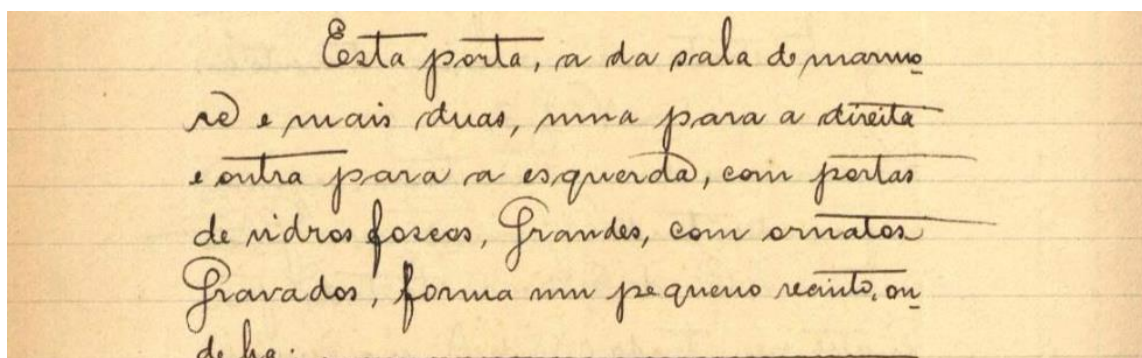 Esta porta, a da sala de marmo
re e mais duas, uma para a direita
e outra para a esquerda, com portas
de vidros foscos, Grandes, com ornatos
Gravados, forma um pequeno recinto, on
de ha: